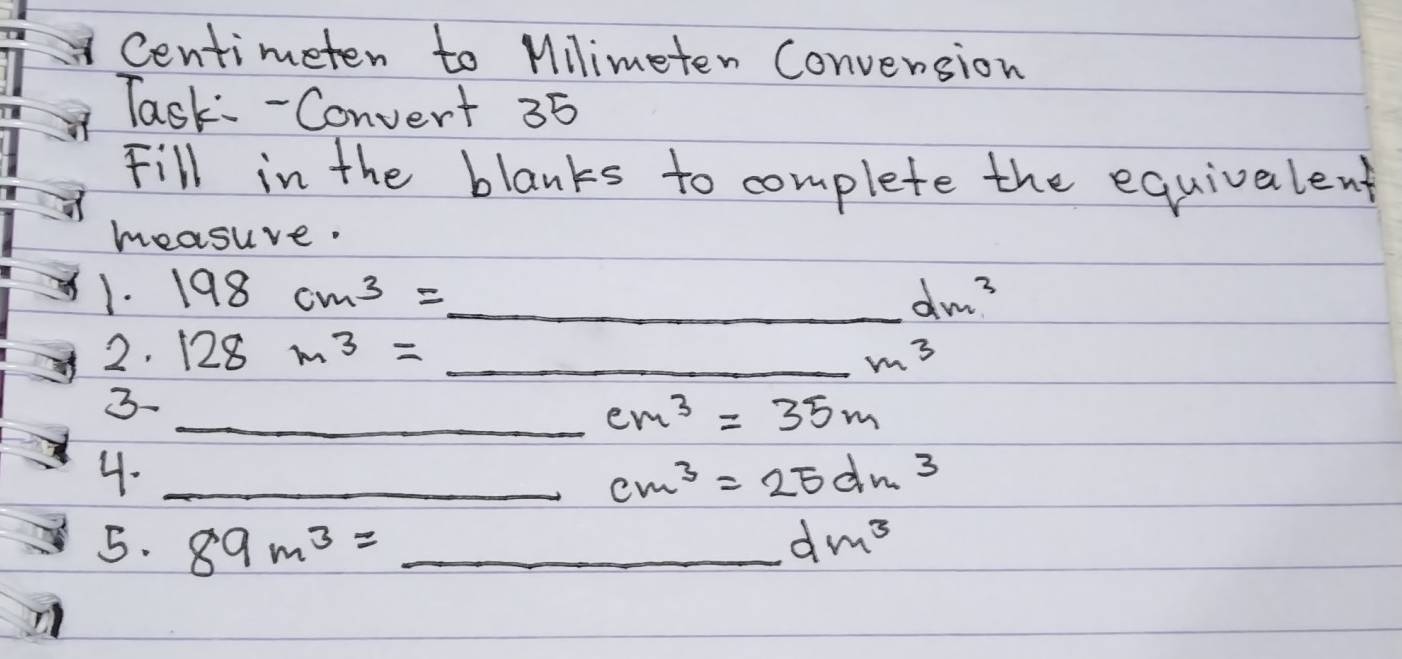 Centimeter to Milimeter Conversion
Task:-Convert 35
Fill in the blanks to complete the equivalent
measure.
1. 198 cm³ = ____________ dm³
2. 128 m³ = ____________ m³
3- ____________ cm³ = 35m
4. ____________ cm³ = 25dm³
5. 89m³ = ____________ dm³